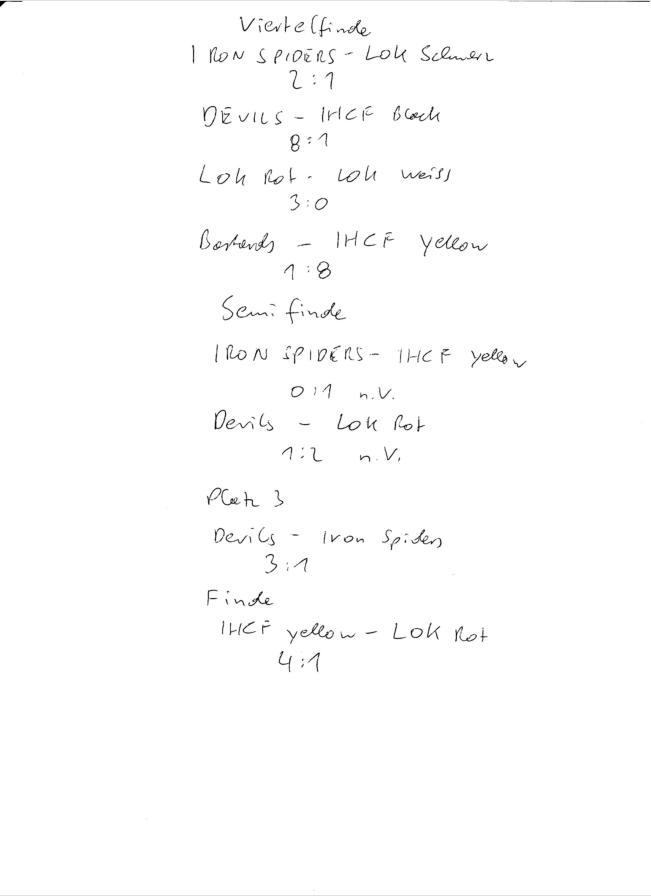 Viertelfinale
IRON SPIDERS - LOK Schwarz
2:1
DEVILS - IHCF Black
8:1
LOK Rot - LOK weiss
3:0
Bastards - IHCF yellow
1:8
Semifinale
IRON SPIDERS - IHCF yellow
0:1 n.V.
Devils - LOK Rot
1:2 n.V.
Platz 3
Devils - Iron Spiders
3:1
Finale
IHCF yellow - LOK Rot
4:1